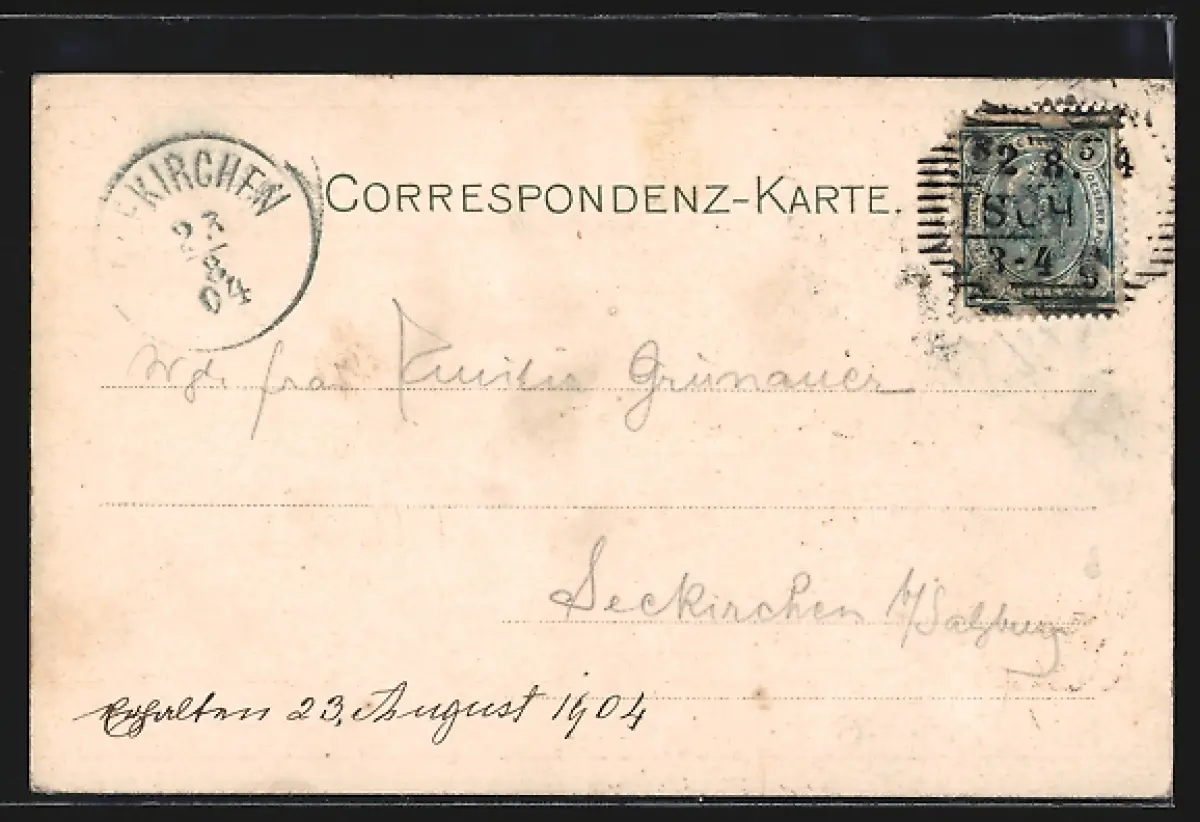 EKIRCHEN
23
8
04
CORRESPONDENZ-KARTE.
5
2 8. 4
3-4 S
Frau Grünauer
Seekirchen b/Salzburg
Erhalten 23. August 1904